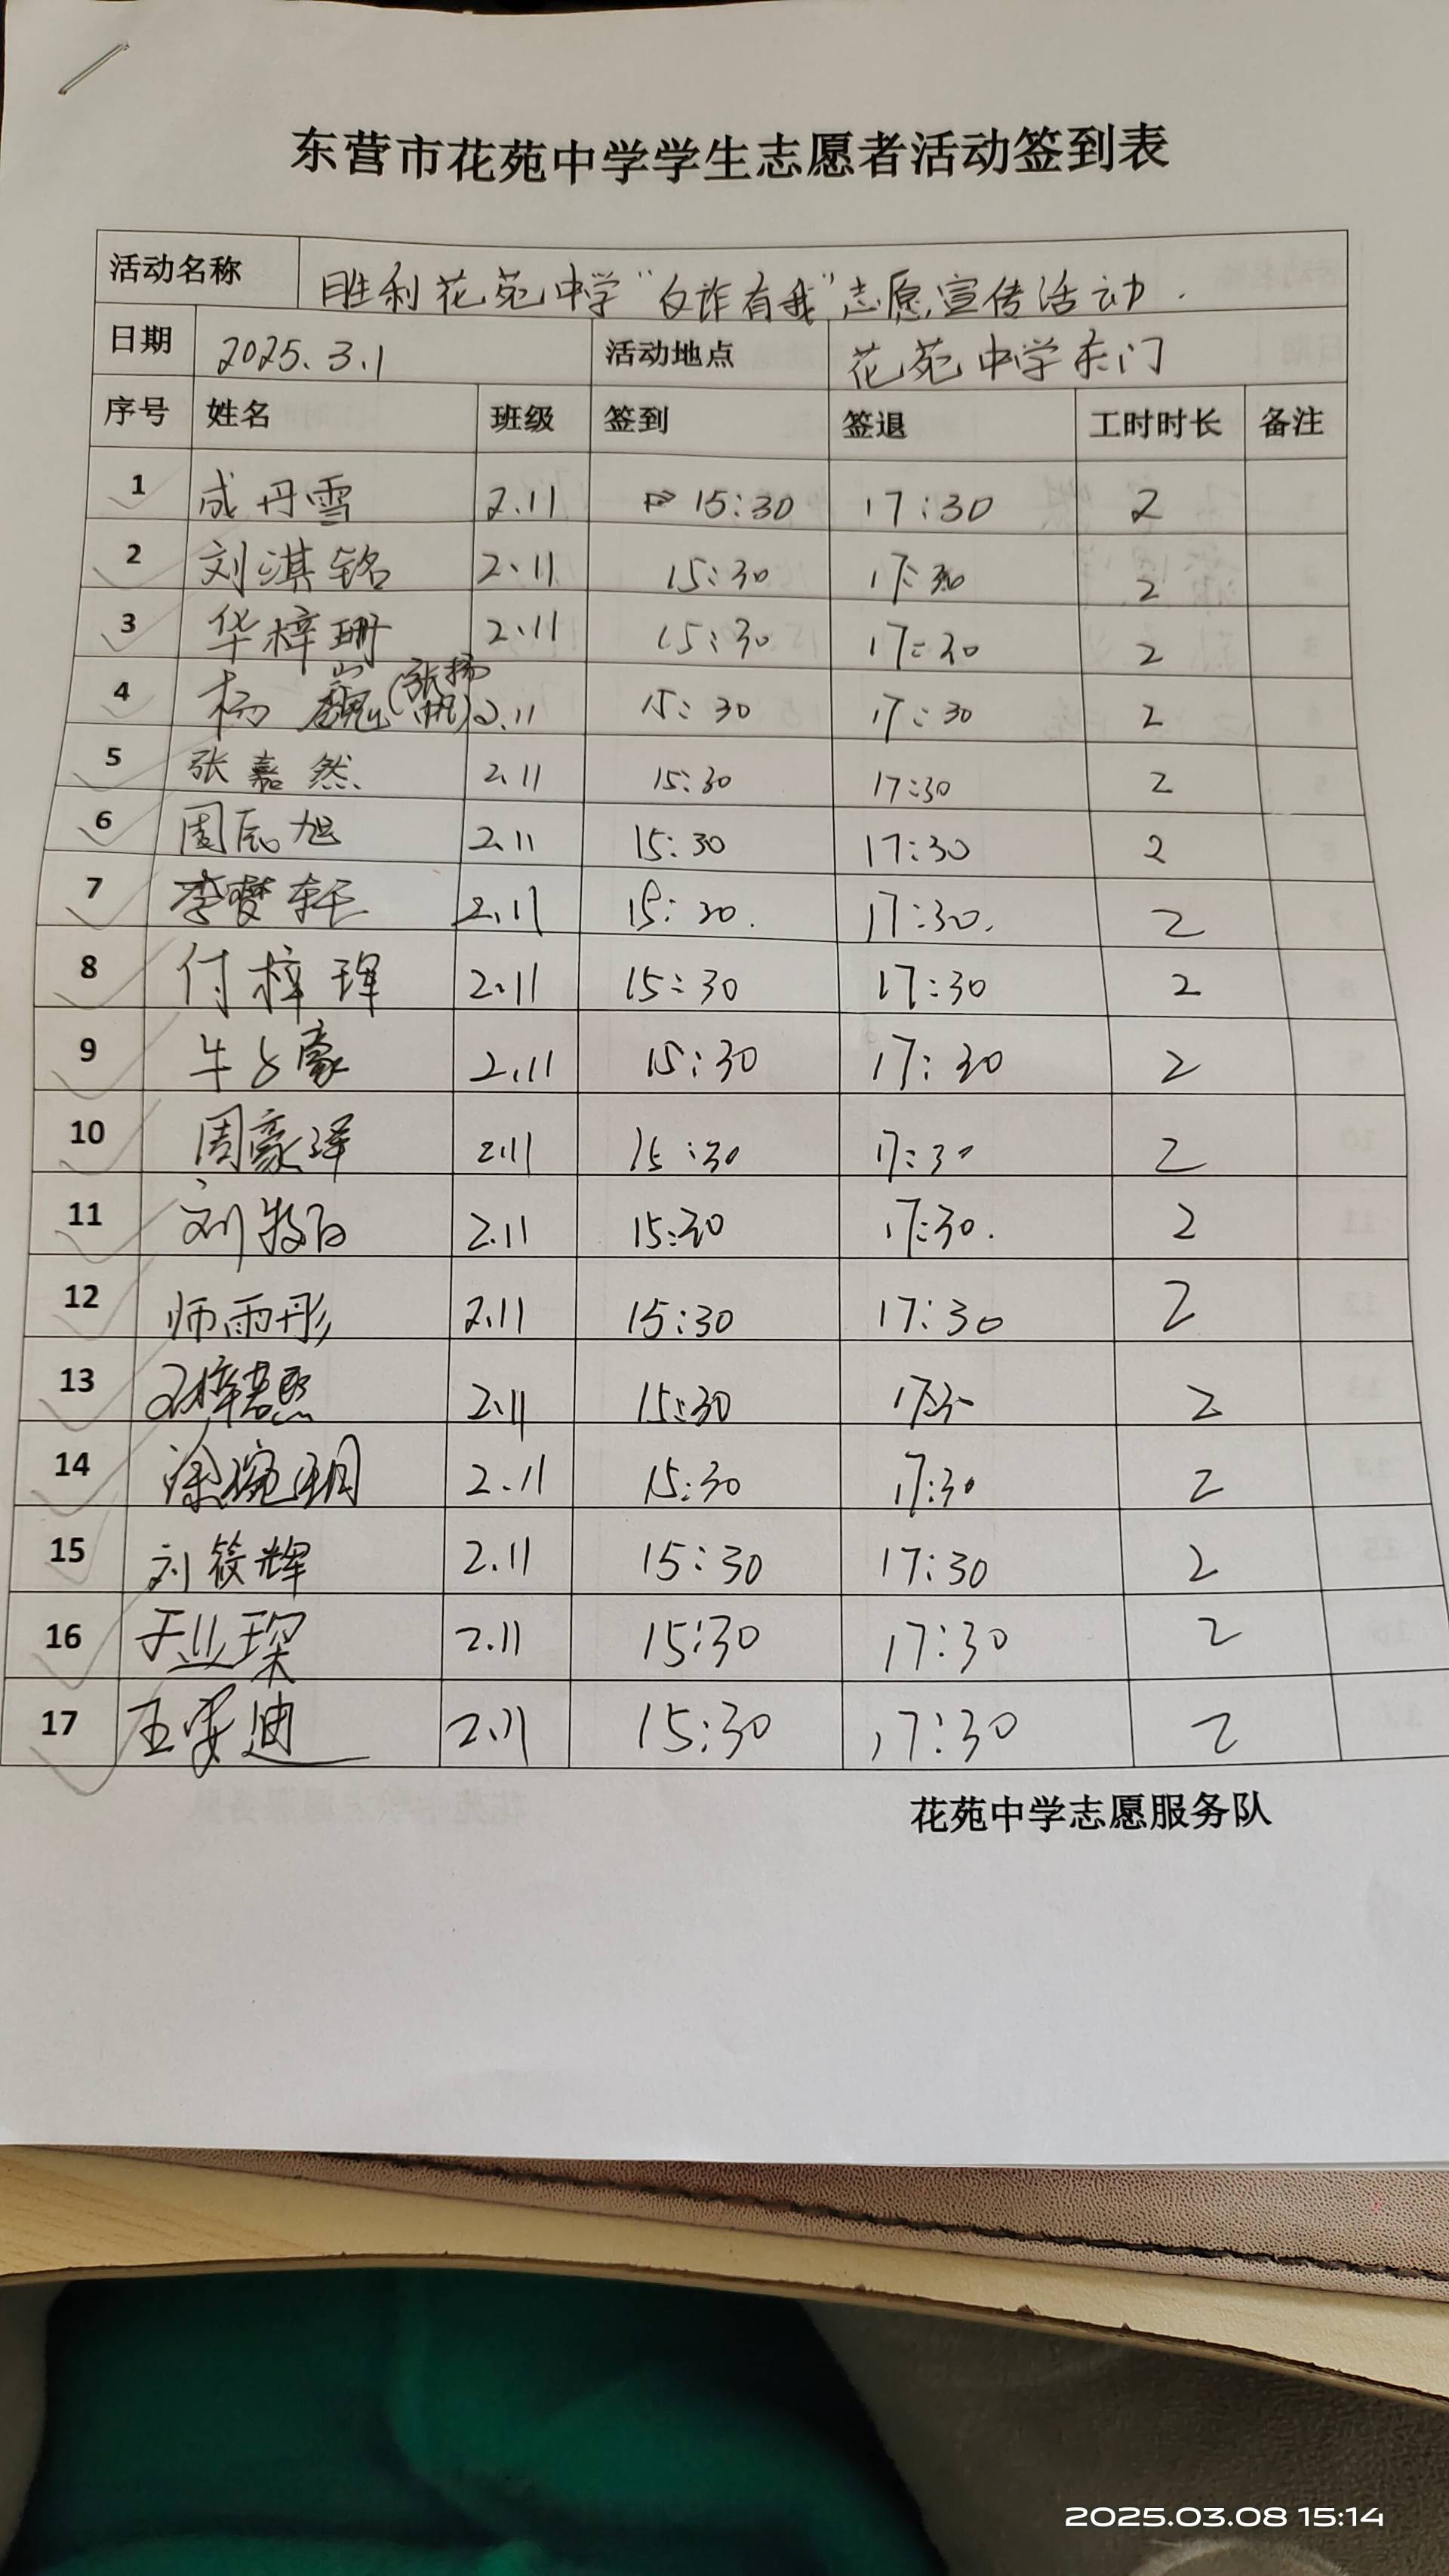 东营市花苑中学学生志愿者活动签到表
活动名称 胜利花苑中学“反诈有我”志愿宣传活动.
日期 2025.3.1 活动地点 花苑中学东门
序号 姓名 班级 签到 签退 工时时长 备注
1 成丹雪 2.11 15:30 17:30 2
2 刘淇铭 2.11 15:30 17:30 2
3 华梓珊 2.11 15:30 17:30 2
4 杨巍(张扬帆) 2.11 15:30 17:30 2
5 张嘉然 2.11 15:30 17:30 2
6 周辰旭 2.11 15:30 17:30 2
7 李梦轩 2.11 15:30. 17:30. 2
8 付梓珲 2.11 15:30 17:30 2
9 牛 豪 2.11 15:30 17:30 2
10 周豪泽 2.11 15:30 17:30 2
11 刘 2.11 15:30 17:30. 2
12 师雨彤 2.11 15:30 17:30 2
13 2.11 15:30 17:30 2
14 徐婉玥 2.11 15:30 17:30 2
15 刘筱辉 2.11 15:30 17:30 2
16 于业琛 2.11 15:30 17:30 2
17 王 迪 2.11 15:30 17:30 2
花苑中学志愿服务队
2025.03.08 15:14